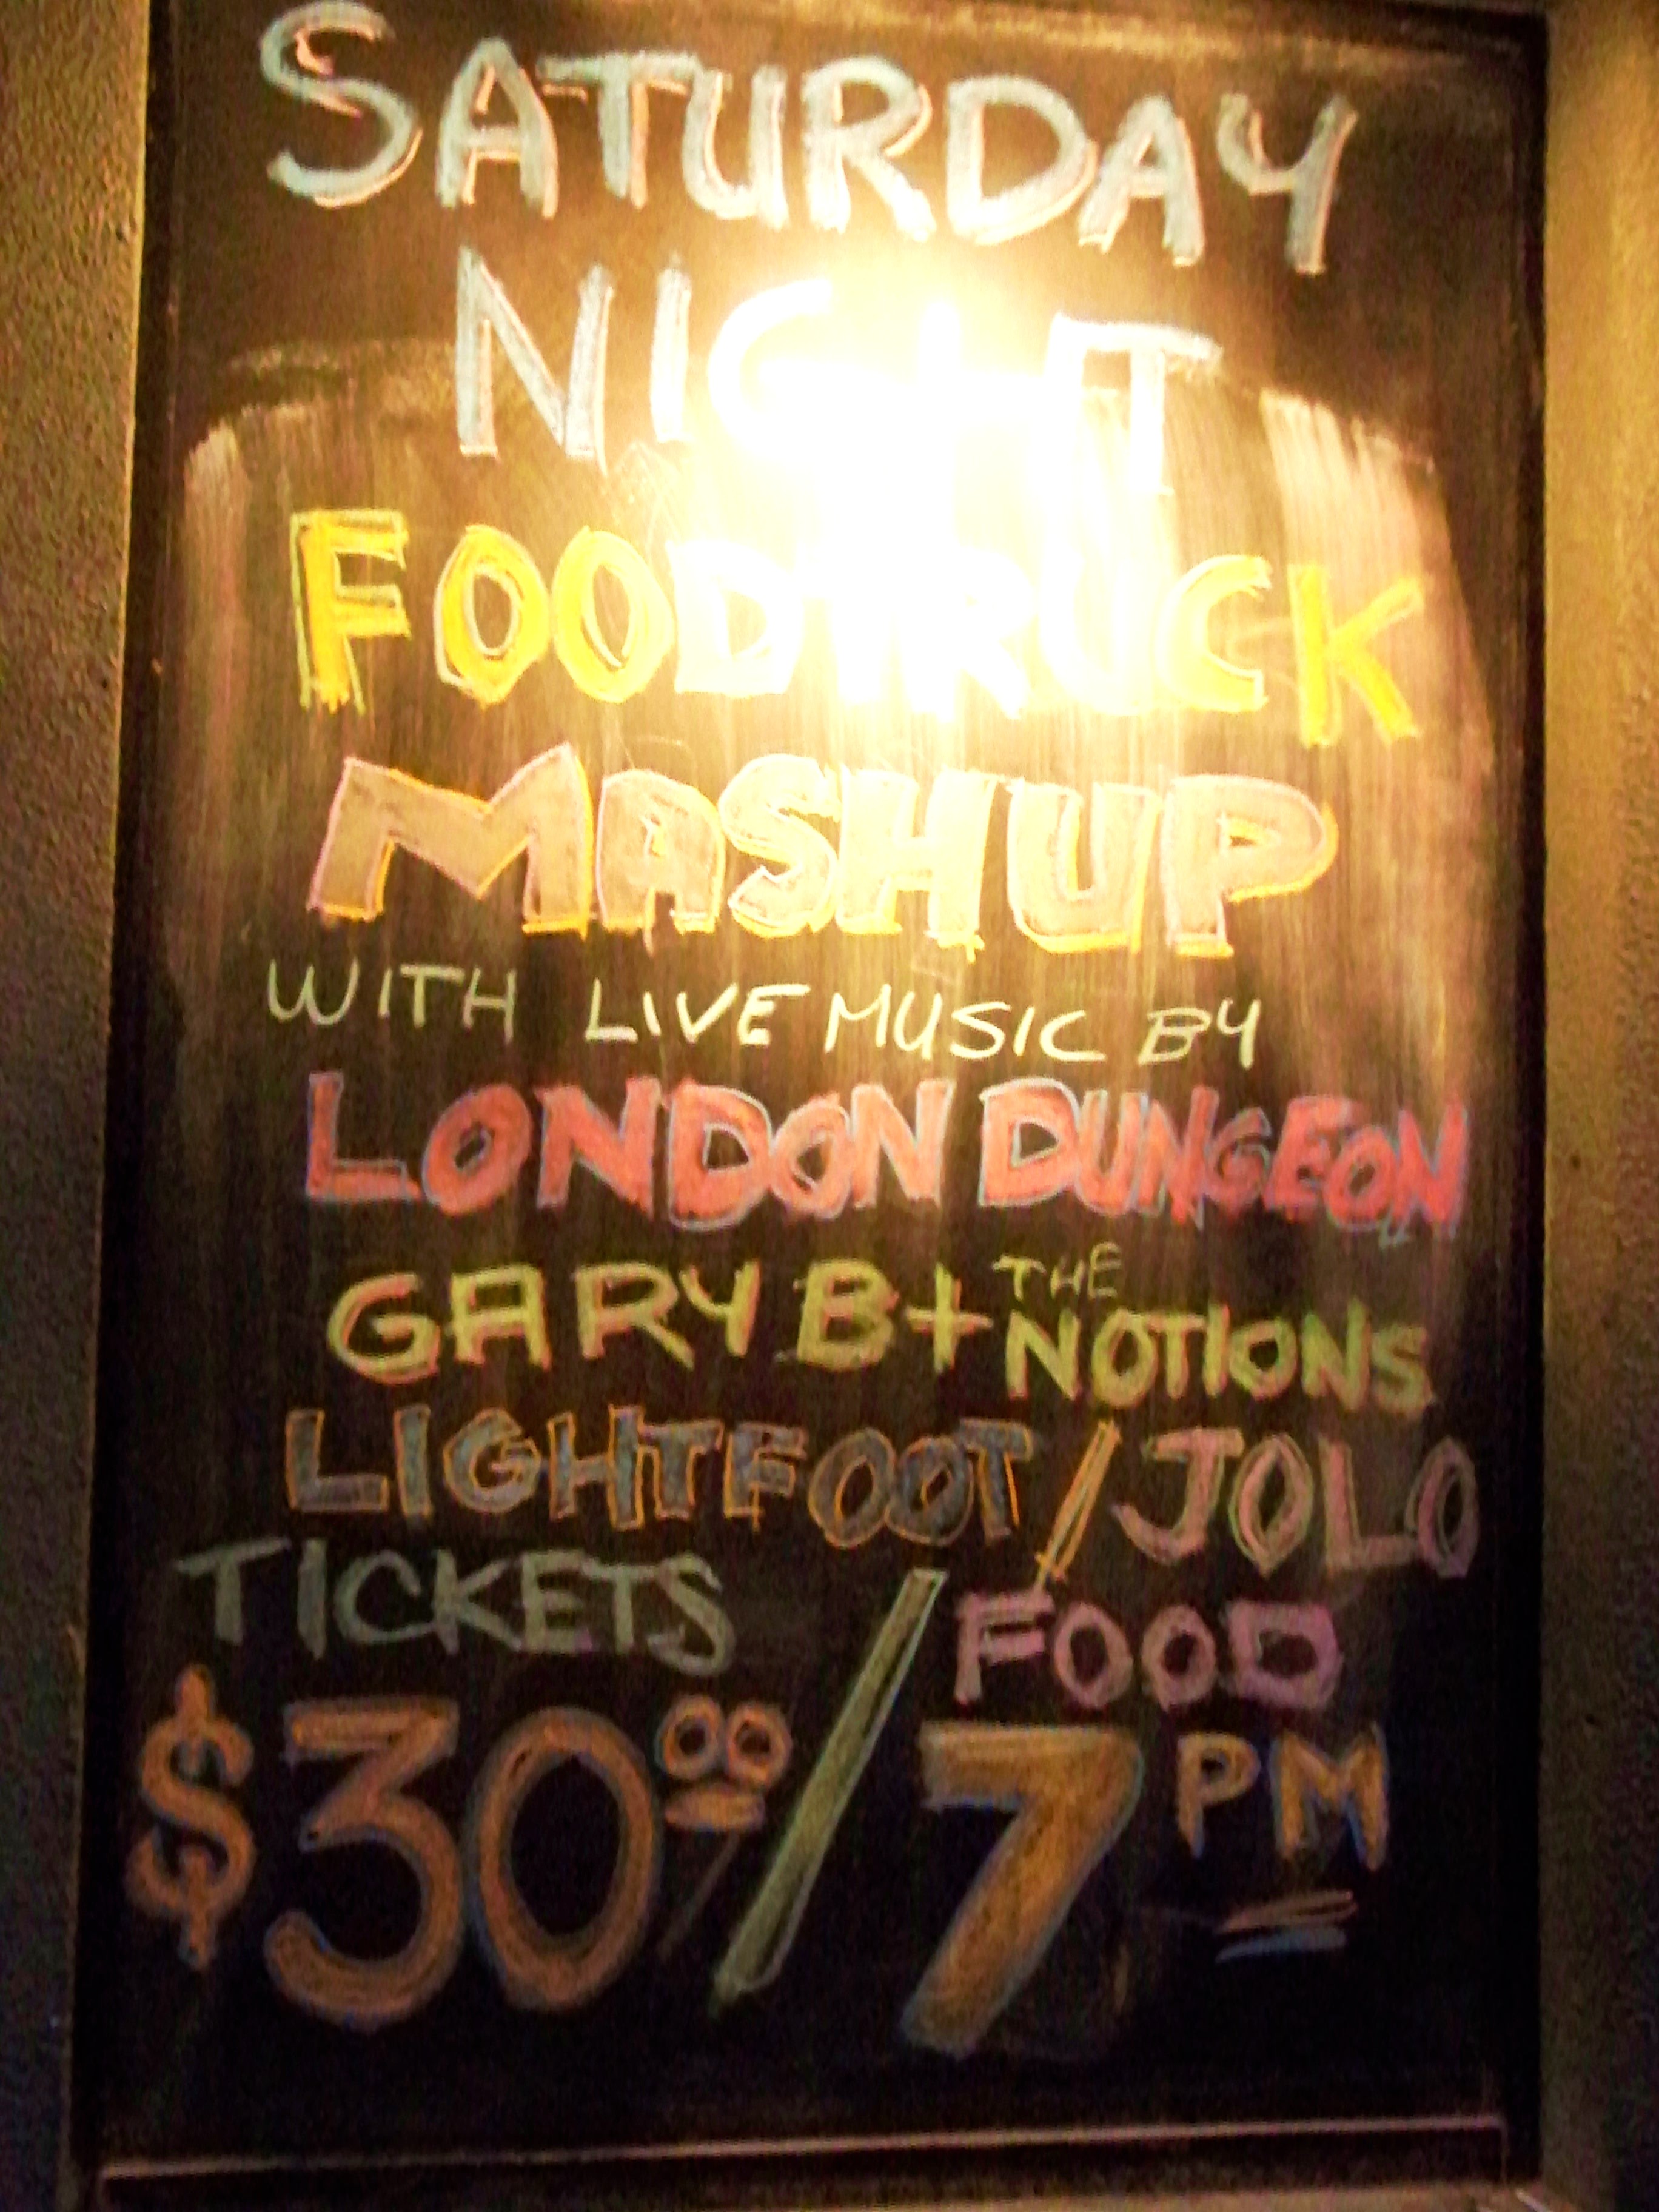 SATURDAY
NIGHT
FOODTRUCK
MASHUP
WITH LIVE MUSIC BY
LONDON DUNGEON
GARY B + THE NOTIONS
LIGHTFOOT / JOLO
TICKETS / FOOD
$3000 / 7PM